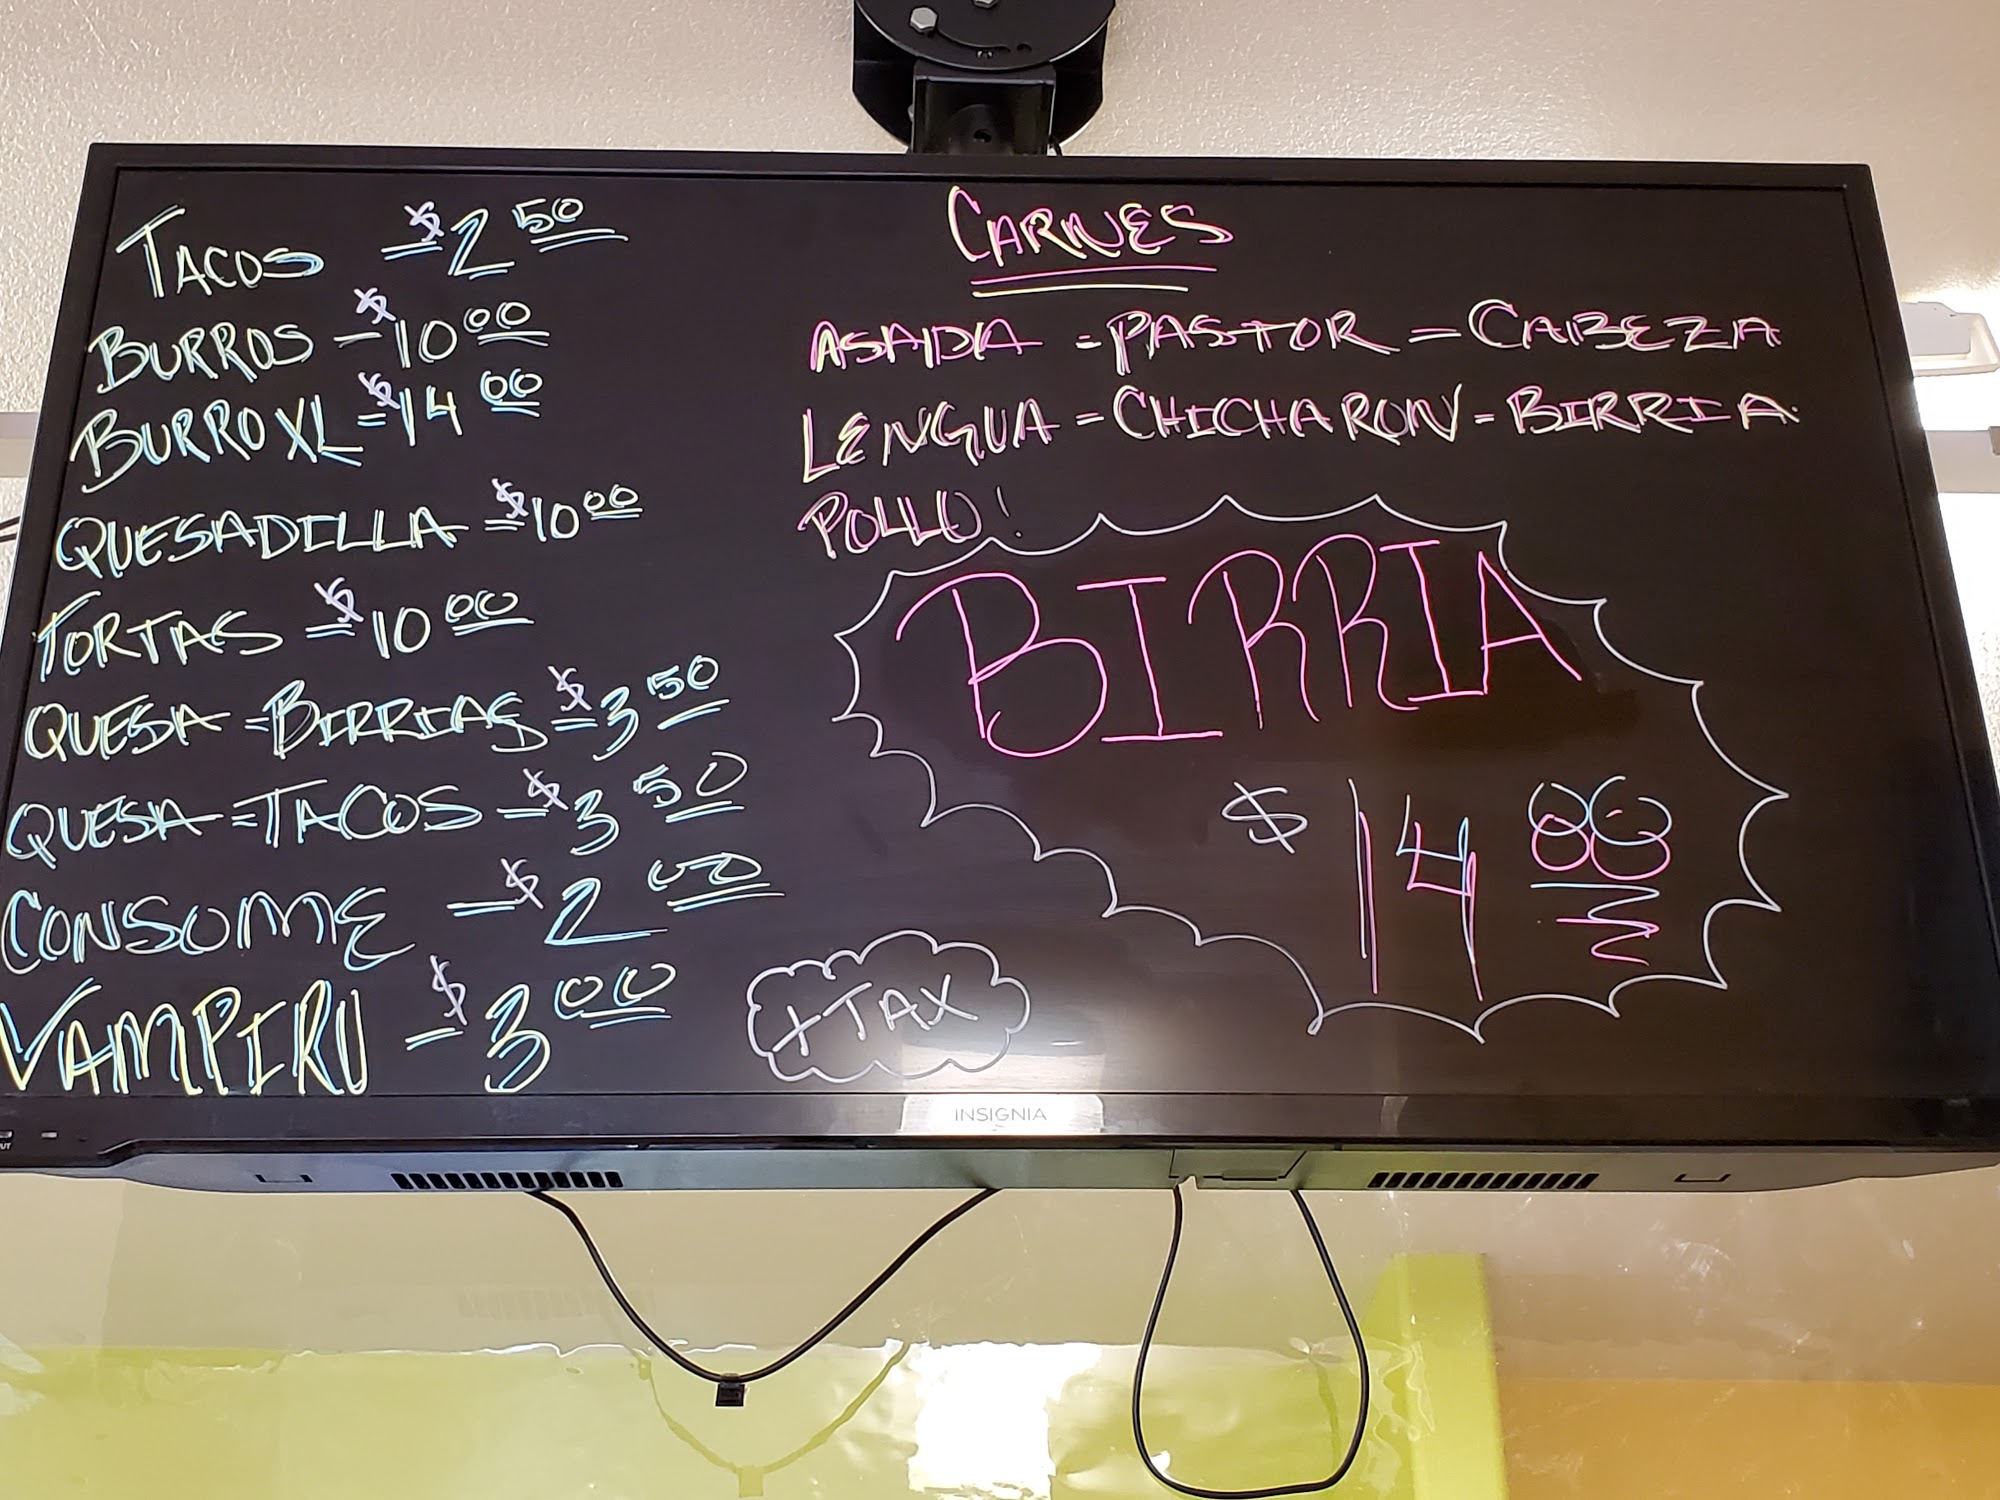 TACOS - $2 50
BURROS - $10 00
BURRO XL = $14 00
QUESADILLA = $10 00
TORTAS = $10 00
QUESA = BIRRIAS = $3 50
QUESA = TACOS = $3 50
CONSOME - $2 00
VAMPIRO - $3 00
CARNES
ASADA = PASTOR = CABEZA
LENGUA = CHICHARON = BIRRIA
POLLO!
BIRRIA
$14
+ TAX
INSIGNIA